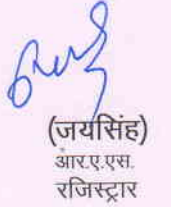 (जयसिंह)
आर.ए.एस.
रजिस्ट्रार